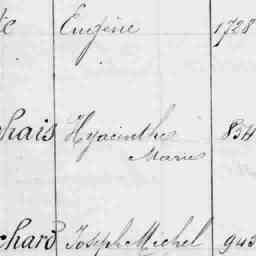 te Eugène 1728
chais Hyacinthe 834
Marie
chard Joseph Michel 943